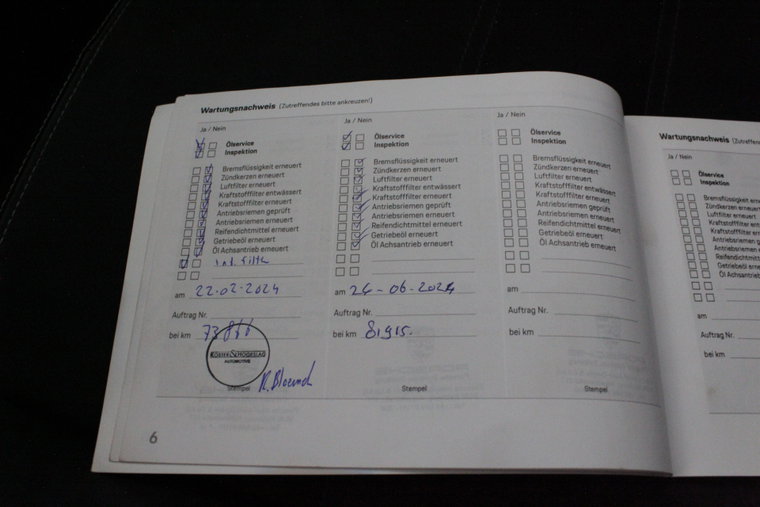 Wartungsnachweis (Zutreffendes bitte ankreuzen!)
Ja / Nein
Ölservice
Inspektion
Bremsflüssigkeit erneuert
Zündkerzen erneuert
Luftfilter erneuert
Kraftstofffilter entwässert
Kraftstofffilter erneuert
Antriebsriemen geprüft
Antriebsriemen erneuert
Reifendichtmittel erneuert
Getriebeöl erneuert
Öl Achsantrieb erneuert
am 22-02-2024
Auftrag Nr.
bei km 73
KÖSTER SCHODESLAG
AUTOMOTIVE
Stempel
Ja / Nein
Ölservice
Inspektion
Bremsflüssigkeit erneuert
Zündkerzen erneuert
Luftfilter erneuert
Kraftstofffilter entwässert
Kraftstofffilter erneuert
Antriebsriemen geprüft
Antriebsriemen erneuert
Reifendichtmittel erneuert
Getriebeöl erneuert
Öl Achsantrieb erneuert
am 26-06-2024
Auftrag Nr.
bei km 81915.
Stempel
Ja / Nein
Ölservice
Inspektion
Bremsflüssigkeit erneuert
Zündkerzen erneuert
Luftfilter erneuert
Kraftstofffilter entwässert
Kraftstofffilter erneuert
Antriebsriemen geprüft
Antriebsriemen erneuert
Reifendichtmittel erneuert
Getriebeöl erneuert
Öl Achsantrieb erneuert
am
Auftrag Nr.
bei km
Stempel
6
Wartungsnachweis (Zutreffend
Ja / Nein
Ölservice
Inspektion
Bremsflüssigkeit ern
Zündkerzen erneuer
Luftfilter erneuert
Kraftstofffilter entwä
Kraftstofffilter erneu
Antriebsriemen g
Antriebsriemen erne
Reifendichtmittel er
Getriebeöl erneuert
Öl Achsantrieb erne
am
Auftrag Nr.
bei km